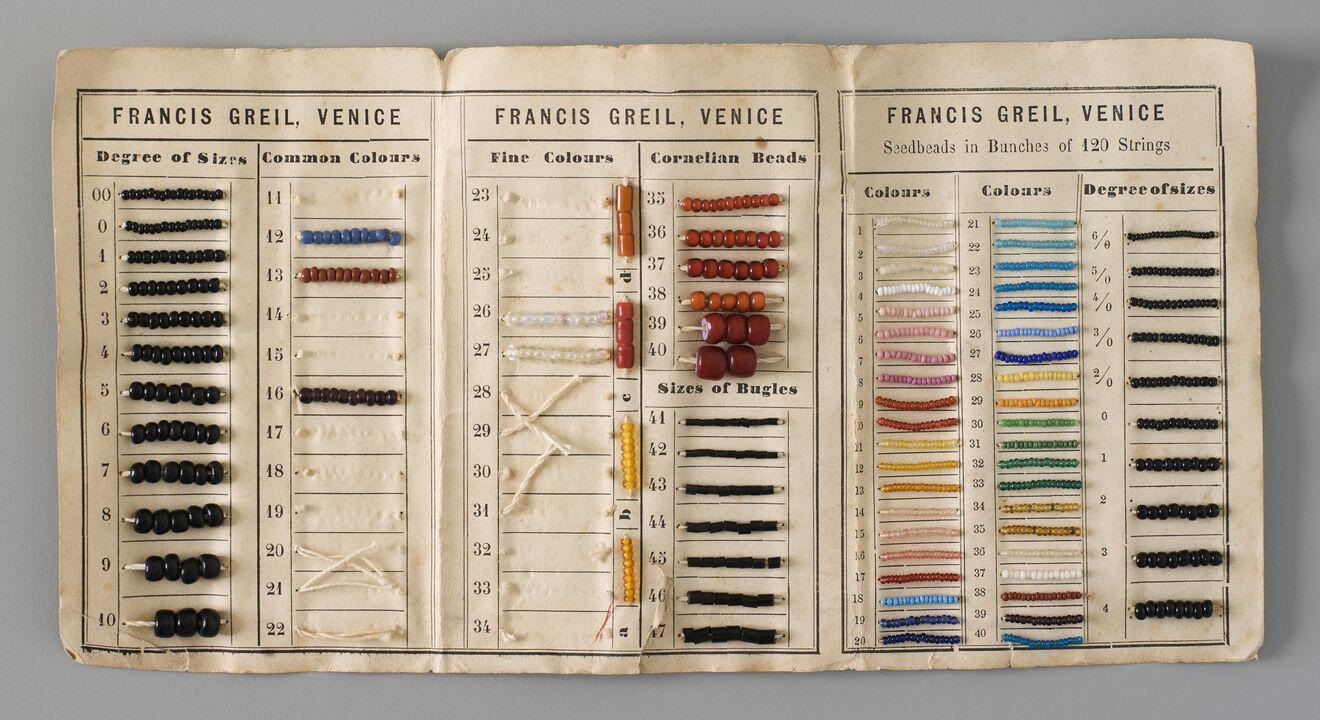 FRANCIS GREIL, VENICE
Degree of Sizes
00
0
1
2
3
4
5
6
7
8
9
10
Common Colours
11
12
13
14
15
16
17
18
19
20
21
22
FRANCIS GREIL, VENICE
Fine Colours
23
24
25
26
27
28
29
30
31
32
33
34
d
c
b
a
Cornelian Beads
35
36
37
38
39
40
Sizes of Bugles
41
42
43
44
45
46
47
FRANCIS GREIL, VENICE
Seedbeads in Bunches of 120 Strings
Colours
1
2
3
4
5
6
7
8
9
10
11
12
13
14
15
16
17
18
19
20
Colours
21
22
23
24
25
26
27
28
29
30
31
32
33
34
35
36
37
38
39
40
Degree of sizes
6/0
5/0
4/0
3/0
2/0
0
1
2
3
4